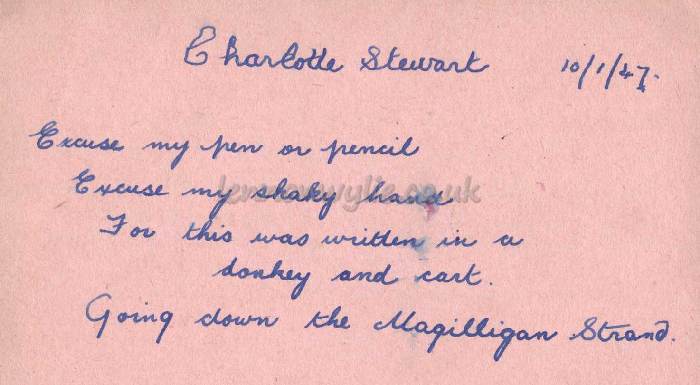 Charlotte Stewart 10/1/47.
Excuse my pen or pencil
Excuse my shaky hand
For this was written in a
donkey and cart.
Going down the Magilligan Strand.